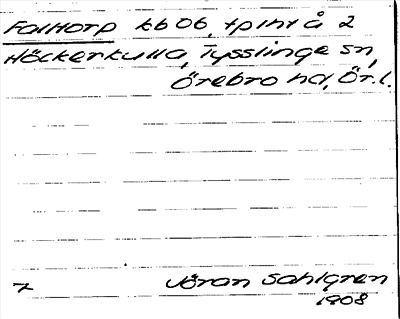 Falltorp kb 06, tp1ht å 2
Höckerkulla, Tysslinge sn,
Örebro hd, Ör.l.
7 Jöran Sahlgren
1908